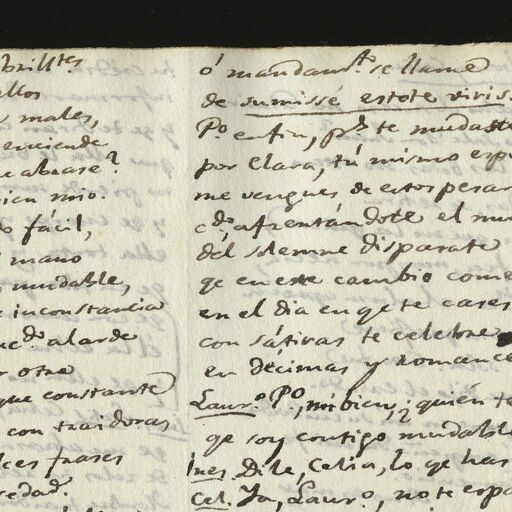 brill.tes
ellos
males,
enciende
abrase?
bien mio.
fácil,
mano
mudable,
inconstancia
alarde
otra
que constante
con traidoras
frases
ó mandam.to se llame
de sumisse estote viris
P.o en fin, p.s te mudaste
por Clara, tú mismo espe
me vengues de estos pesar
c.do, afrentándote el mu
del solemne disparate
qe en este cambio come
en el dia en qe te cases
con sátiras te celebre
en décimas y romance
Laur.o P.o, mi bien, quién te
qe soy contigo mudable
Ines. Dile, Celia, lo qe has
Cel. Ya, Laur.o, no te espa